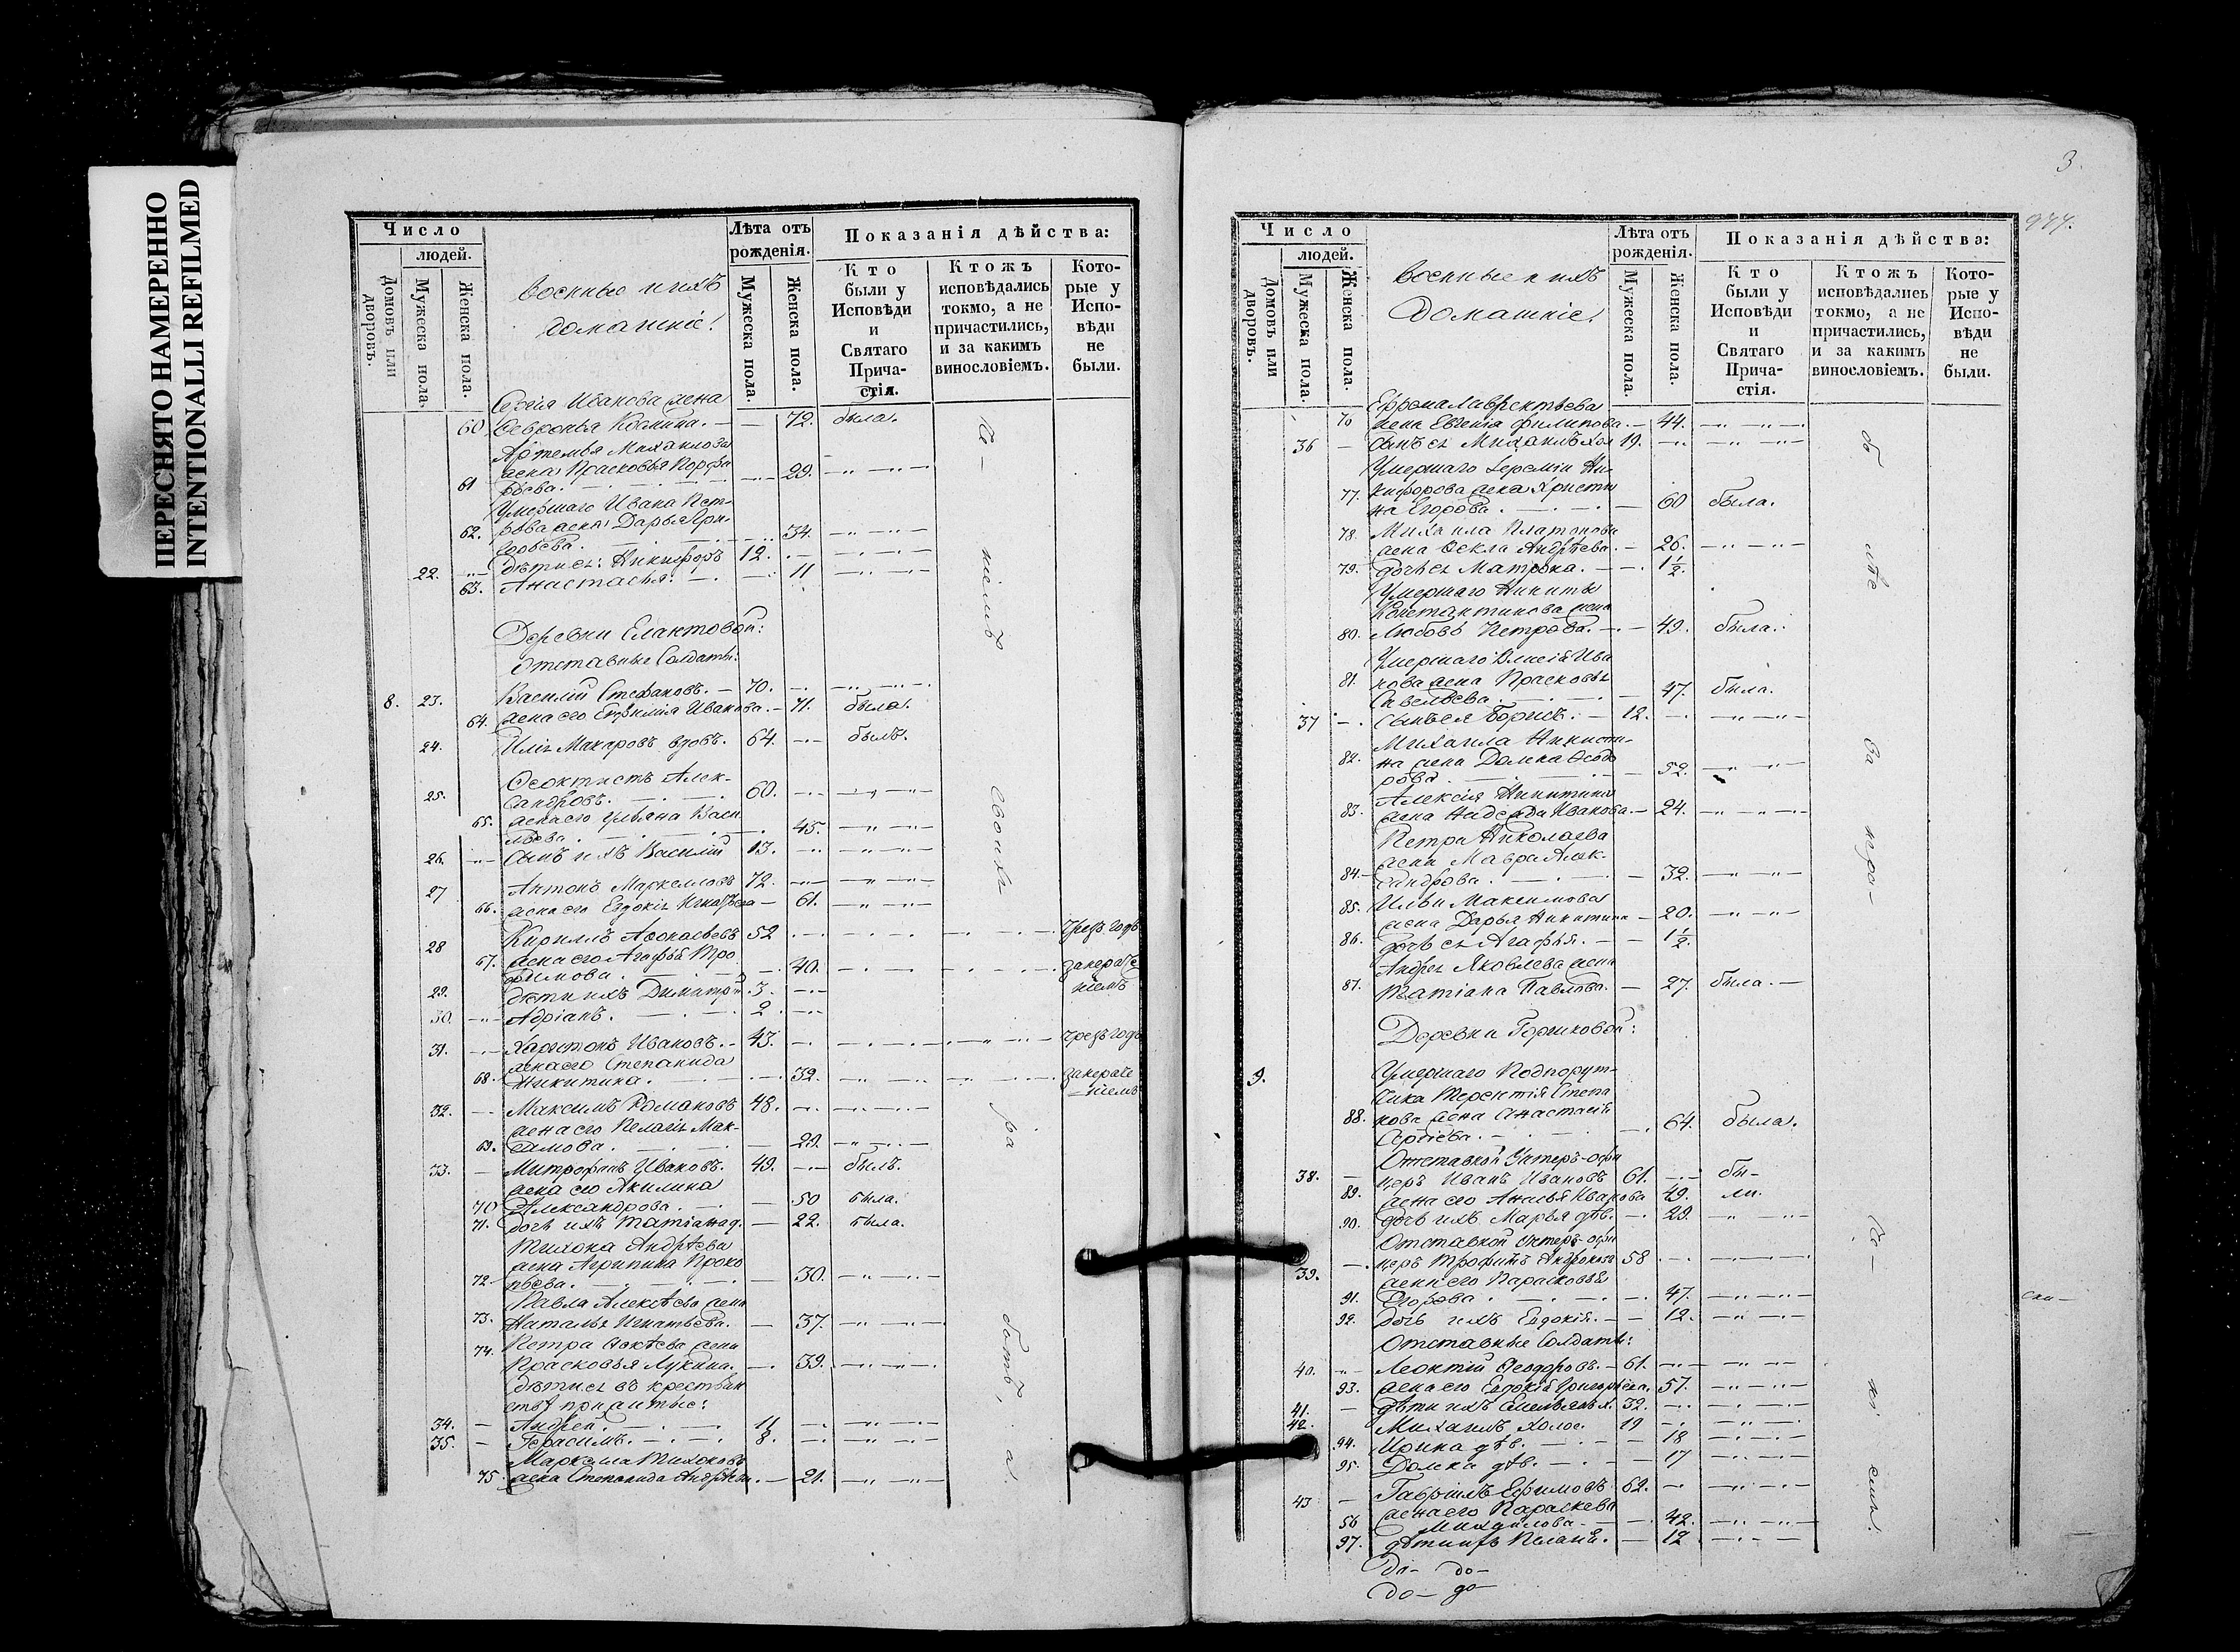 ПЕРЕСНЯТО НАМЕРЕННО
INTENTIONALLI REFILMED
Число
людей.
Домовъ или дворовъ.
Мужеска пола.
Женска пола.
Военные и ихъ
домашніе.
Лѣта отъ рожденія.
Мужеска пола.
Женска пола.
Показанія дѣйства:
Кто были у Исповѣди и Святаго Причастія.
Ктожъ исповѣдались токмо, а не причастились, и за какимъ винословіемъ.
Которые у Исповѣди не были.
Сергія Иванова жена
60. Февронья Козмина. — — 72. была.
Артемья Михайлова
жена Прасковья Порфи
61 рьева. — 29. —„—„—
Умершаго Ивана Пет-
62. рова жена Дарья Гри-
горьева. — 34. —„—„—
22. дѣти ея: Никифоръ 12. —
63. Анастасья. — 11 —
Деревни Елактовой:
Отставные Солдаты:
8. 23. Василій Стефановъ. — 70. —
64. жена его Евфимія Иванова. — 71. была.
24. Илія Макаровъ вдовъ. 64. — былъ.
25. Феоктистъ Алек-
сандровъ. — 60. —
65. жена его Ульяна Васи
льева. — 45. —„—„—
26. Сынъ ихъ Василій 13. —
27 Антонъ Маркелловъ 72. —
66. жена его Евдокія Игнатьева — 61. —
28 Кириллъ Афонасьевъ 52 — чрезъ годъ
67. жена его Агафья Тро
фимова. — 40. — за нераче
29. дѣти ихъ Димитрій. 3. — ніемъ
30. Адріанъ. — 2. —
31. Харитонъ Ивановъ. — 43. — чрезъ годъ
жена его Степанида
68. Никитина. — 32. — за нераче
ніемъ
32. Максимъ Романовъ 48. —
жена его Пелагія Мак-
69. симова. — 29. —
33. Митрофанъ Ивановъ. 49. — былъ.
жена его Акилина
70 Александрова. — 50 была.
71. дочь ихъ Татіана д. — 22. была.
Тихона Андрѣева
жена Агрипина Проко
72. пьева. — 30. —
Павла Алексѣева жена
73. Наталья Игнатьева. — 37. —
74. Петра жена
Прасковья Лукина. — 39. —
дѣти ея въ крестьян
ствѣ прижитые:
34. Андрей. — 11 —
35. Герасимъ. — 8. —
75 жена Степанида Андрѣева. — 21. —
3.
937.
Число
людей.
Домовъ или дворовъ.
Мужеска пола.
Женска пола.
Военные и ихъ
Домашніе.
Лѣта отъ рожденія.
Мужеска пола.
Женска пола.
Показанія дѣйства:
Кто были у Исповѣди и Святаго Причастія.
Ктожъ исповѣдались токмо, а не причастились, и за какимъ винословіемъ.
Которые у Исповѣди не были.
Ефрема Лаврентьева
76 жена Евгенія Филипова. — 44. —
36 — Сынъ ея Михаилъ хол 19. —
Умершаго Іереміи Ни-
77. кифорова жена Христи
на Егорова. — 60 была.
78. Михаила Платонова
жена Фекла Андрѣева. — 26. —
79. дочь ея Матрона. — 1½.
Умершаго Никиты
Константинова жена
80. Любовь Петрова. — 49. была.
Умершаго Ива
81. нова жена Прасковья
Савельева. — 47. была.
37 — Сынъ ея Борисъ. — 12. —
Михаила Никити-
82. на жена Домна Феодо
рова. — 52. —
Алексія Никитина
83. жена Надежда Иванова. — 24. —
Петра Николаева
жена Мавра Алек-
84. сандрова. — 32. —
85. Ильи Максимова
жена Дарья Никитина — 20. —
86. дочь ея Агафья. — 1½.
Андрея Яковлева жена
87. Татіана Павлова. — 27. была. —
Деревни Горшковой:
9. Умершаго Подпорут-
чика Терентія Степа
88. нова жена Анастасія
— 64. была.
Отставной Унтеръ-офи
38. — церъ Иванъ Ивановъ 61. — бы-
89. жена его Анисья Иванова 49. ли.
90. дочь ихъ Марья дѣв. — 29. —
Отставной Унтеръ-офи
39. — церъ Трофимъ 58 —
жена его Парасковья
91. Егорова. — 47. —
92. дочь ихъ Евдокія. — 12. —
Отставные Солдаты:
40. Леонтій Феодоровъ. — 61. —
93. жена его Евдокія Григорьева. 57. —
41. — дѣти ихъ Емельянъ х. 32. —
42. Михаилъ холос. 19 —
94. Ирина дѣв. — 18 —
95. Домна дѣв. — 17 —
43 — Гавріилъ Ефимовъ 62. —
жена его Параскева
56 Михайлова — 42. —
97. дѣти ихъ — 12 —
До- до-
до- до